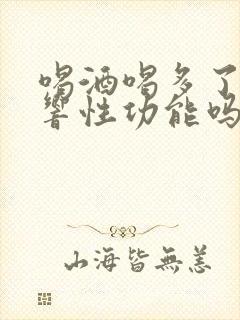 喝酒喝多了
响性功能吗
山海皆無恙